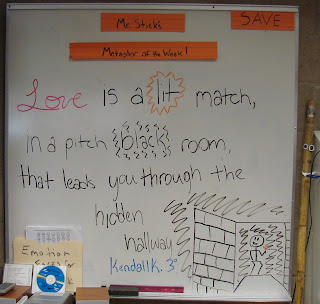 Mr. Stick's
SAVE
Metaphor of the Week!
Love is a lit match,
in a pitch black room,
that leads you through the
hidden
hallway
Kendall K. 3°
Emotion